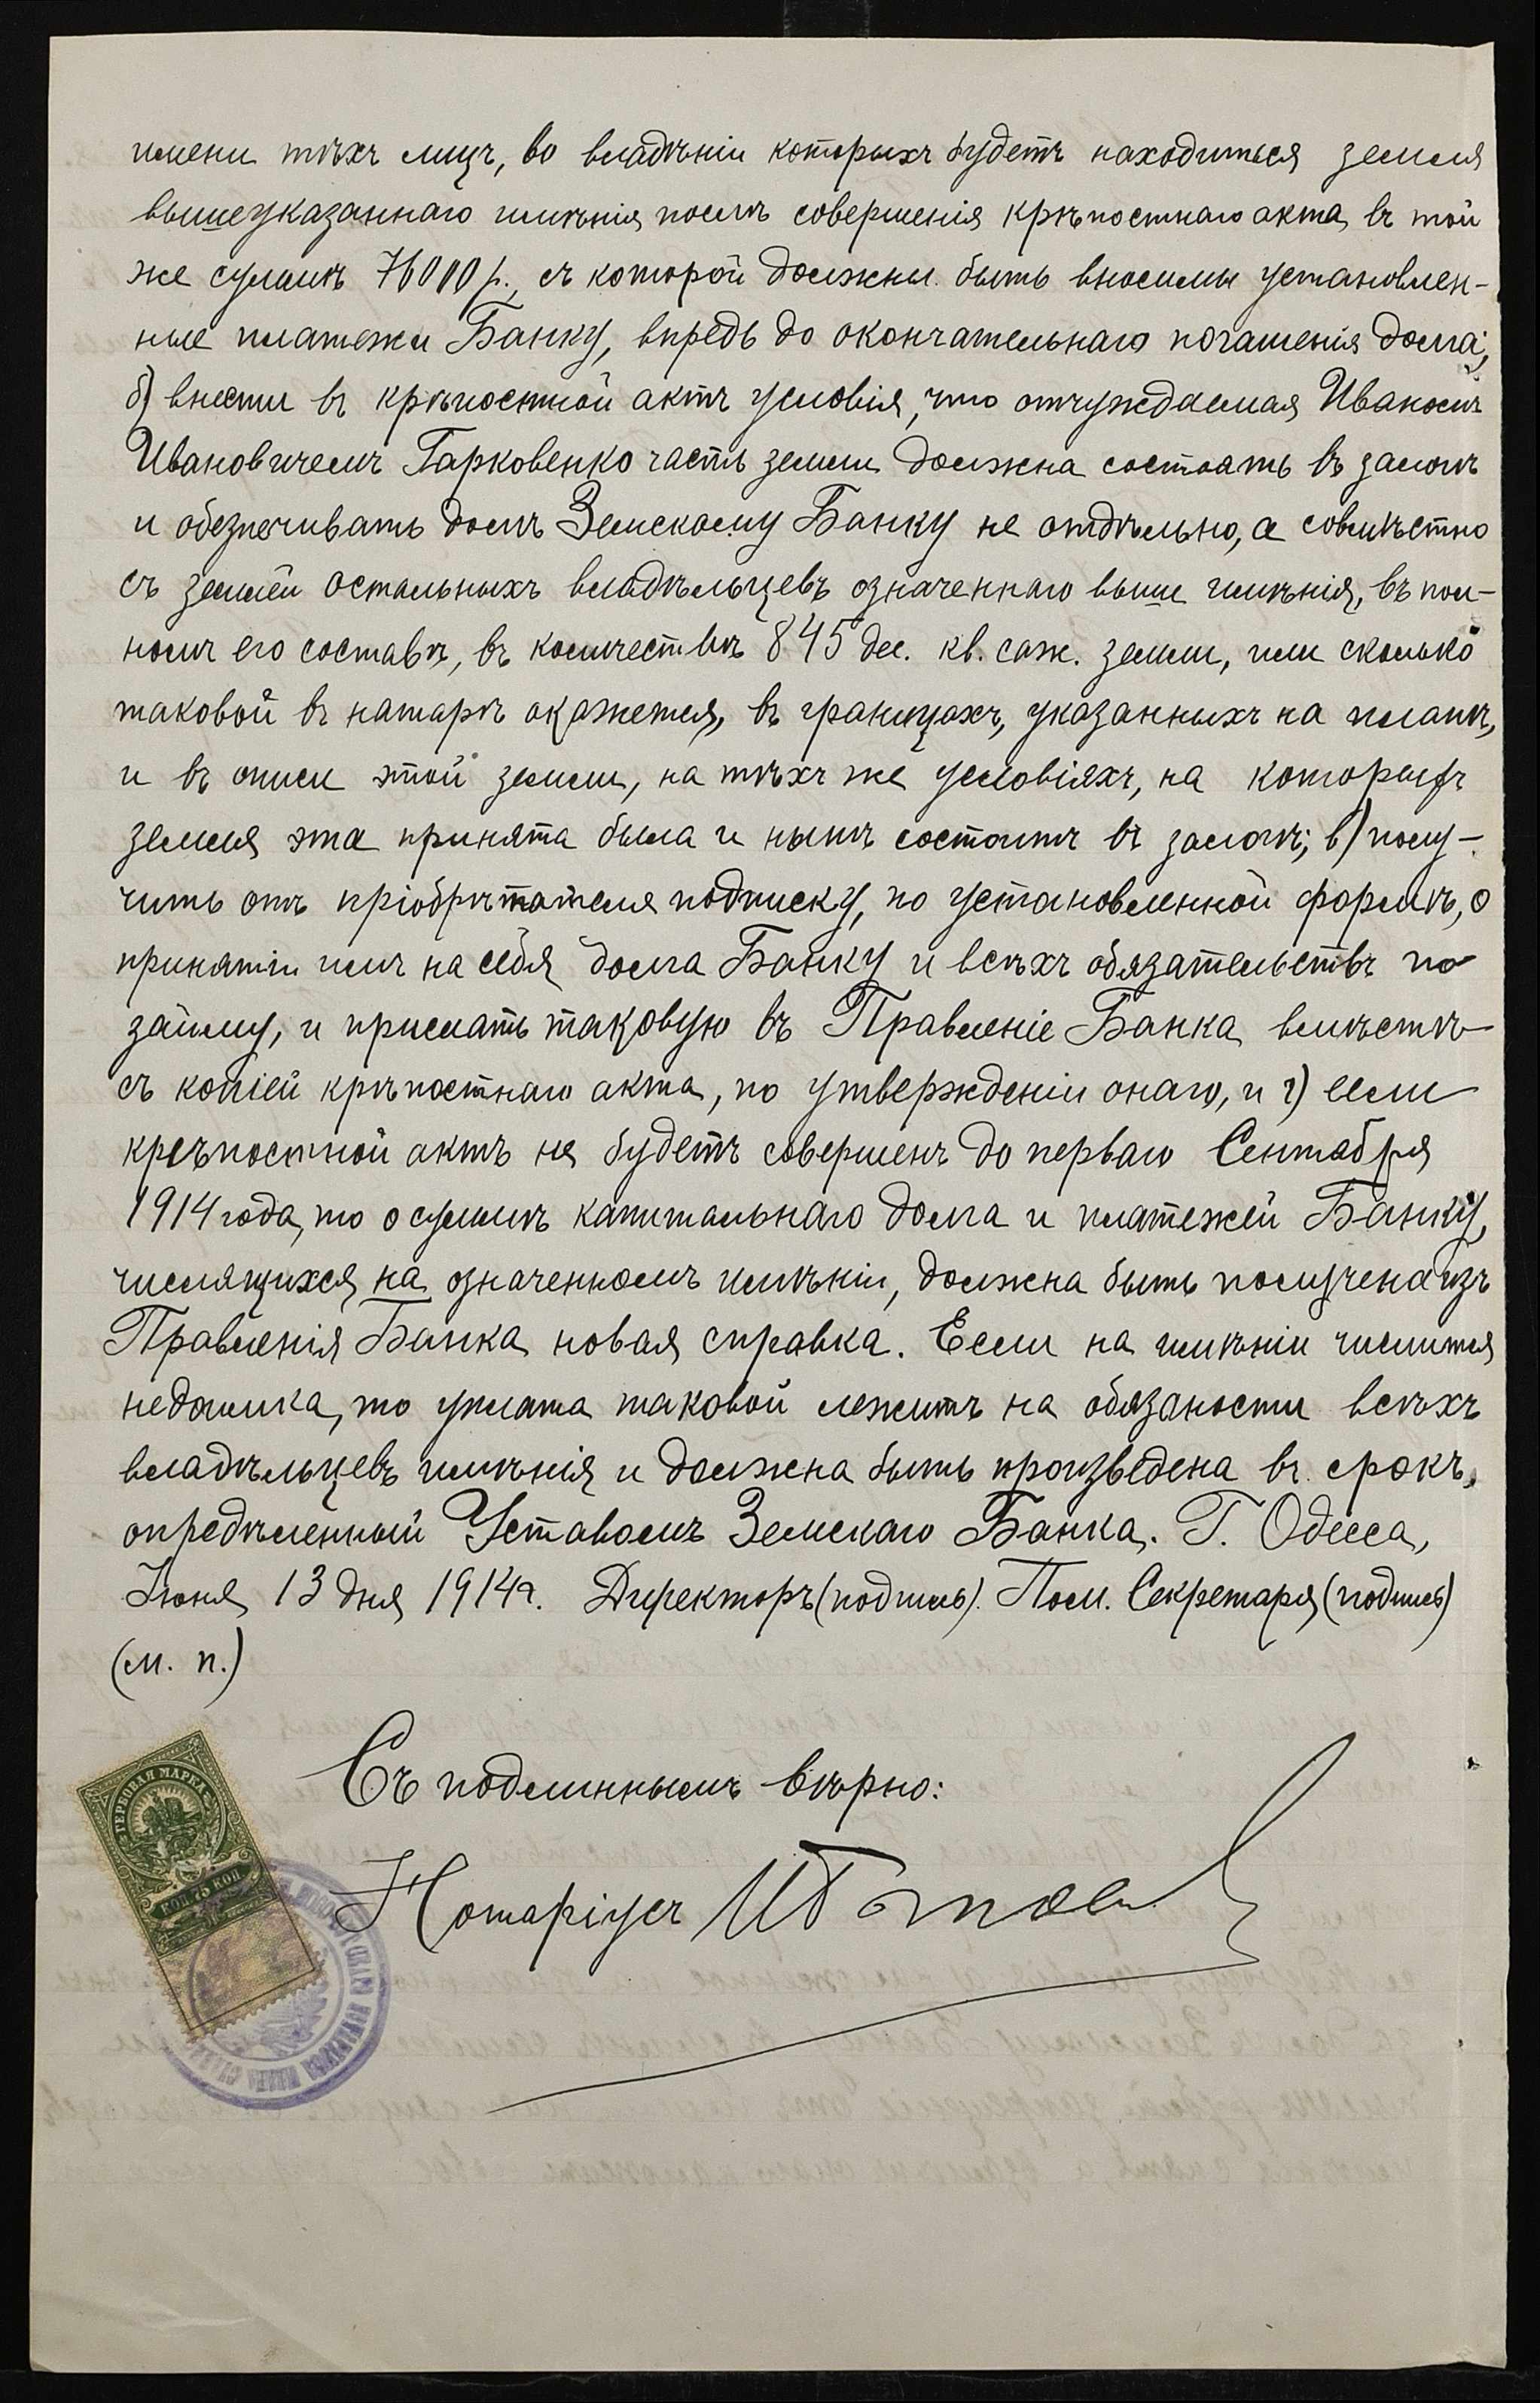 имени тѣхъ лицъ, во владѣніи которыхъ будетъ находиться земля
вышеуказаннаго имѣнія послѣ совершенія крѣпостнаго акта, въ той
же суммѣ 76000 р., съ которой должны быть вносимы установлен-
ные платежи Банку, впредь до окончательнаго погашенія долга;
б) внести въ крѣпостной актъ условія, что отчуждаемая Иваномъ
Ивановичемъ Гарковенко часть земли должна состоять въ залогѣ
и обезпечивать долгъ Земскому Банку не отдѣльно, а совмѣстно
съ землей остальныхъ владѣльцевъ означеннаго выше имѣнія, въ пол-
номъ его составѣ, въ количествѣ 845 дес. кв. саж. земли, или сколько
таковой въ натурѣ окажется, въ границахъ, указанныхъ на планѣ,
и въ описи этой земли, на тѣхъ же условіяхъ, на которыхъ
земля эта принята была и нынѣ состоитъ въ залогѣ; в) полу-
чить отъ пріобрѣтателя подписку, по установленной формѣ, о
принятіи имъ на себя долга Банку и всѣхъ обязательствъ по
займу, и прислать таковую въ Правленіе Банка вмѣстѣ
съ копіей крѣпостнаго акта, по утвержденіи онаго, и г) если
крѣпостной актъ не будетъ совершенъ до перваго Сентября
1914 года, то о суммѣ капитальнаго долга и платежей Банку,
числящихся на означенномъ имѣніи, должна быть получена изъ
Правленія Банка новая справка. Если на имѣніи числится
недоимка, то уплата таковой лежитъ на обязаности всѣхъ
владѣльцевъ имѣнія и должна быть произведена въ срокъ,
опредѣленный Уставомъ Земскаго Банка. Г. Одесса,
Іюня 13 дня 1914г. Директоръ (подпись). Пом. Секретаря (подпись)
(м. п.)
Съ подлиннымъ вѣрно:
Нотаріусъ
ГЕРБОВАЯ МАРКА
КОП. 75 КОП.